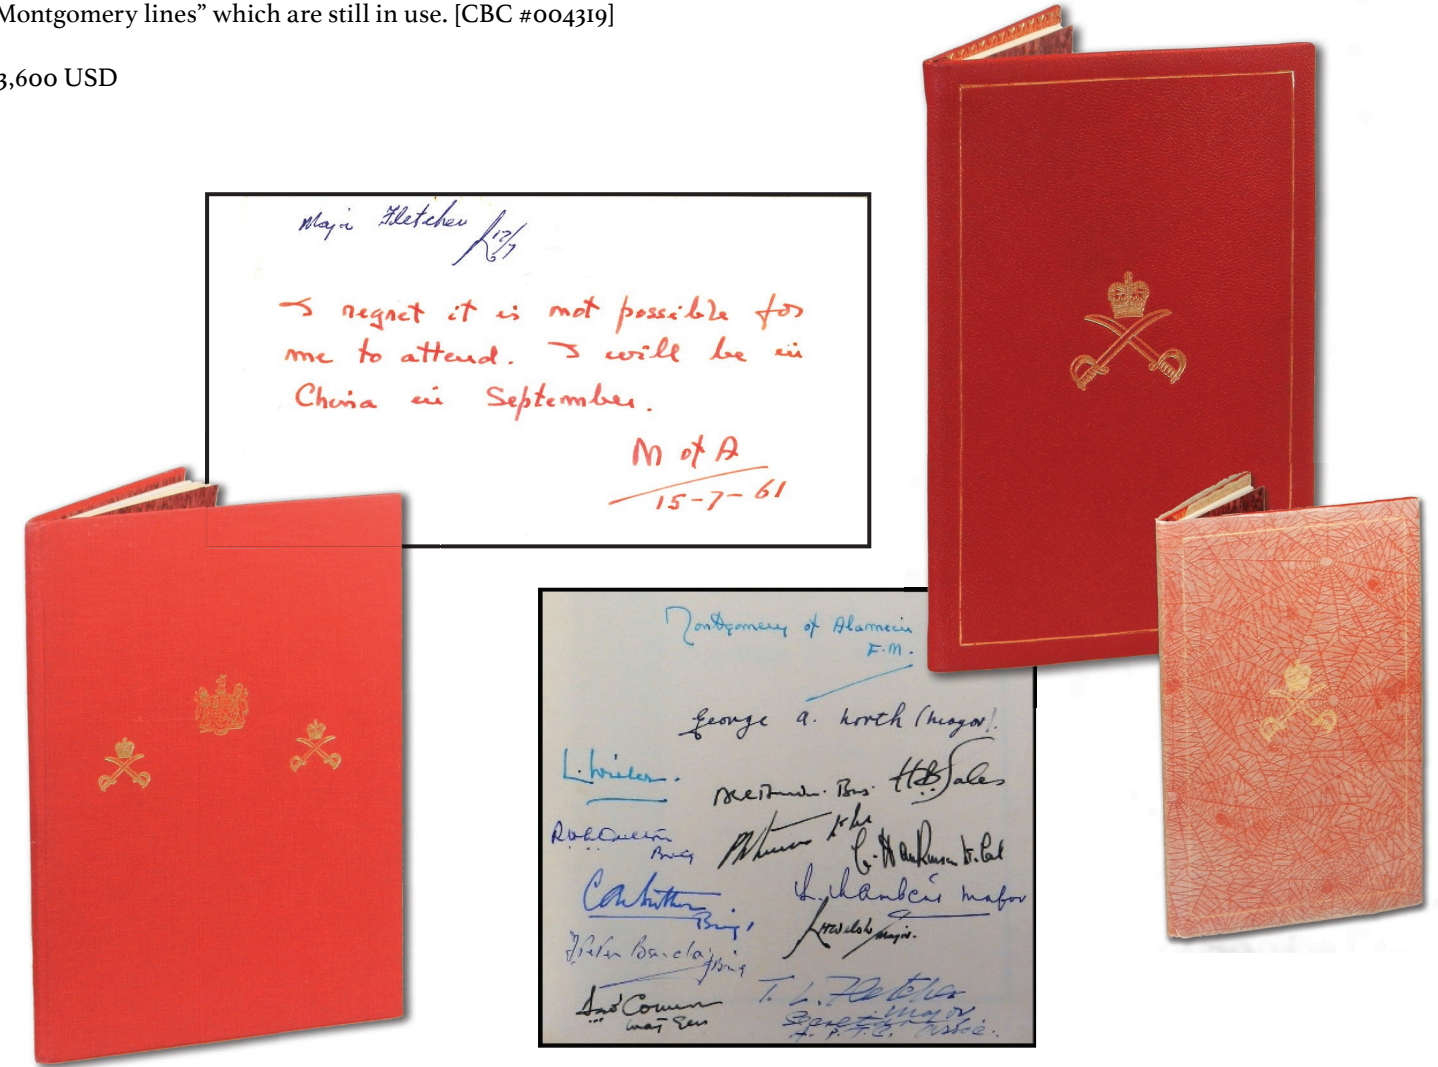 Montgomery lines” which are still in use. [CBC #004319]
3,600 USD
Major Fletcher
17/7
I regret it is not possible for
me to attend. I will be in
China in September.
M of A
15-7-61
Montgomery of Alamein
F.M.
George A. North (Mayor).
L. Wilson.
H B Sales
Brig
Lt. Col
Brig
L. Lambert Major
H Welsh Major.
Brig
Maj Gen
T. L. Fletcher
Major
Secretary
A.P.T.C. Assoc.